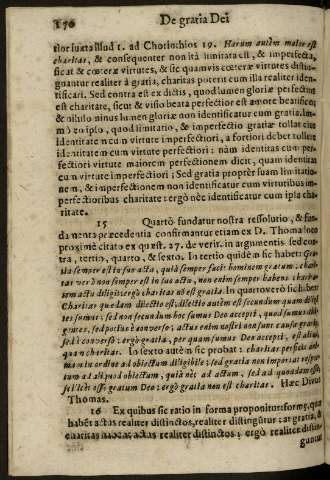 170 De gratia Dei
tior iuxta illud 1. ad Chorinthios 19. Harum autèm maior est
charitas, & consequenter non ità limitata est, & imperfecta,
sicut & cœteræ virtutes, & sic quamvis cœteræ virtutes distin-
guantur realiter à gratia, charitas poterit cum illa realiter iden-
tificari. Sed contra est ex dictis, quod lumen gloriæ perfectius
est charitate, sicut & visio beata perfectior est amore beatifico;
& nihilo minus lumen gloriæ non identificatur cum gratia,
m) eo ipso, quod limitatio, & imperfectio gratiæ tollat eius
identitatem cum virtute imperfectiori, à fortiori debet tollere
identitatem cum virtute perfectiori: nàm identitas cum per-
fectiori virtute maiorem perfectionem dicit, quam identitas
cum virtute imperfectiori; Sed gratia proptèr suam limitatio-
nem, & imperfectionem non identificatur cum virtutibus im-
perfectioribus charitate: ergò nèc identificatur cum ipsa cha-
ritate.
15 Quartò fundatur nostra ressolutio, & fun-
damenta præcedentia confirmantur etiam ex D. Thoma loco
proximè citato ex quæst. 27. de verit. in argumentis sed con-
tra, tertio, quarto, & sexto. In tertio quidèm sic habet: Gra-
tia semper est in suo actu, quià semper facit hominem gratum: chari-
tas verò non semper est in suo actu, non enim semper habens charita-
tem actu diligit: ergò charitas nò est gratia. In quarto verò sic habet:
Charitas quædam dilectio est, dilectio autèm est secundum quam dili-
tes sumus: sed non secundum hoc sumus Deo accepti, quod sumus dili-
gentes, sed potius è converso; actus enim nostri non sunt causa gratiæ,
sed è converso: ergò gratia, per quam sumus Deo accepti, est aliud,
quàm charitas. In sexto autèm sic probat: charitas perficit ani-
mam in ordine ad obiectum diligibile; sed gratia non importat respec-
tum ad aliquod obiectum, quià nèc ad actum, sed ad quoddam esse,
scilicèt esse gratum Deo: ergò gratia non est charitas. Hæc Divus
Thomas.
16 Ex quibus sic ratio in forma proponitur: formæ, quæ
habèt actus realiter distinctos, realiter distinguùtur: at gratia, &
charitas habèt actus realiter distinctos; ergò realiter distin-
guntur